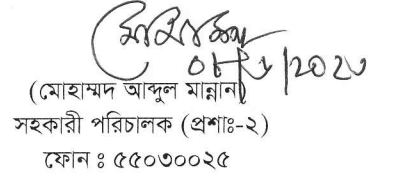 (মোহাম্মদ আব্দুল মান্নান)
সহকারী পরিচালক (প্রশাঃ-২)
ফোন ঃ ৫৫০৩০০২৫